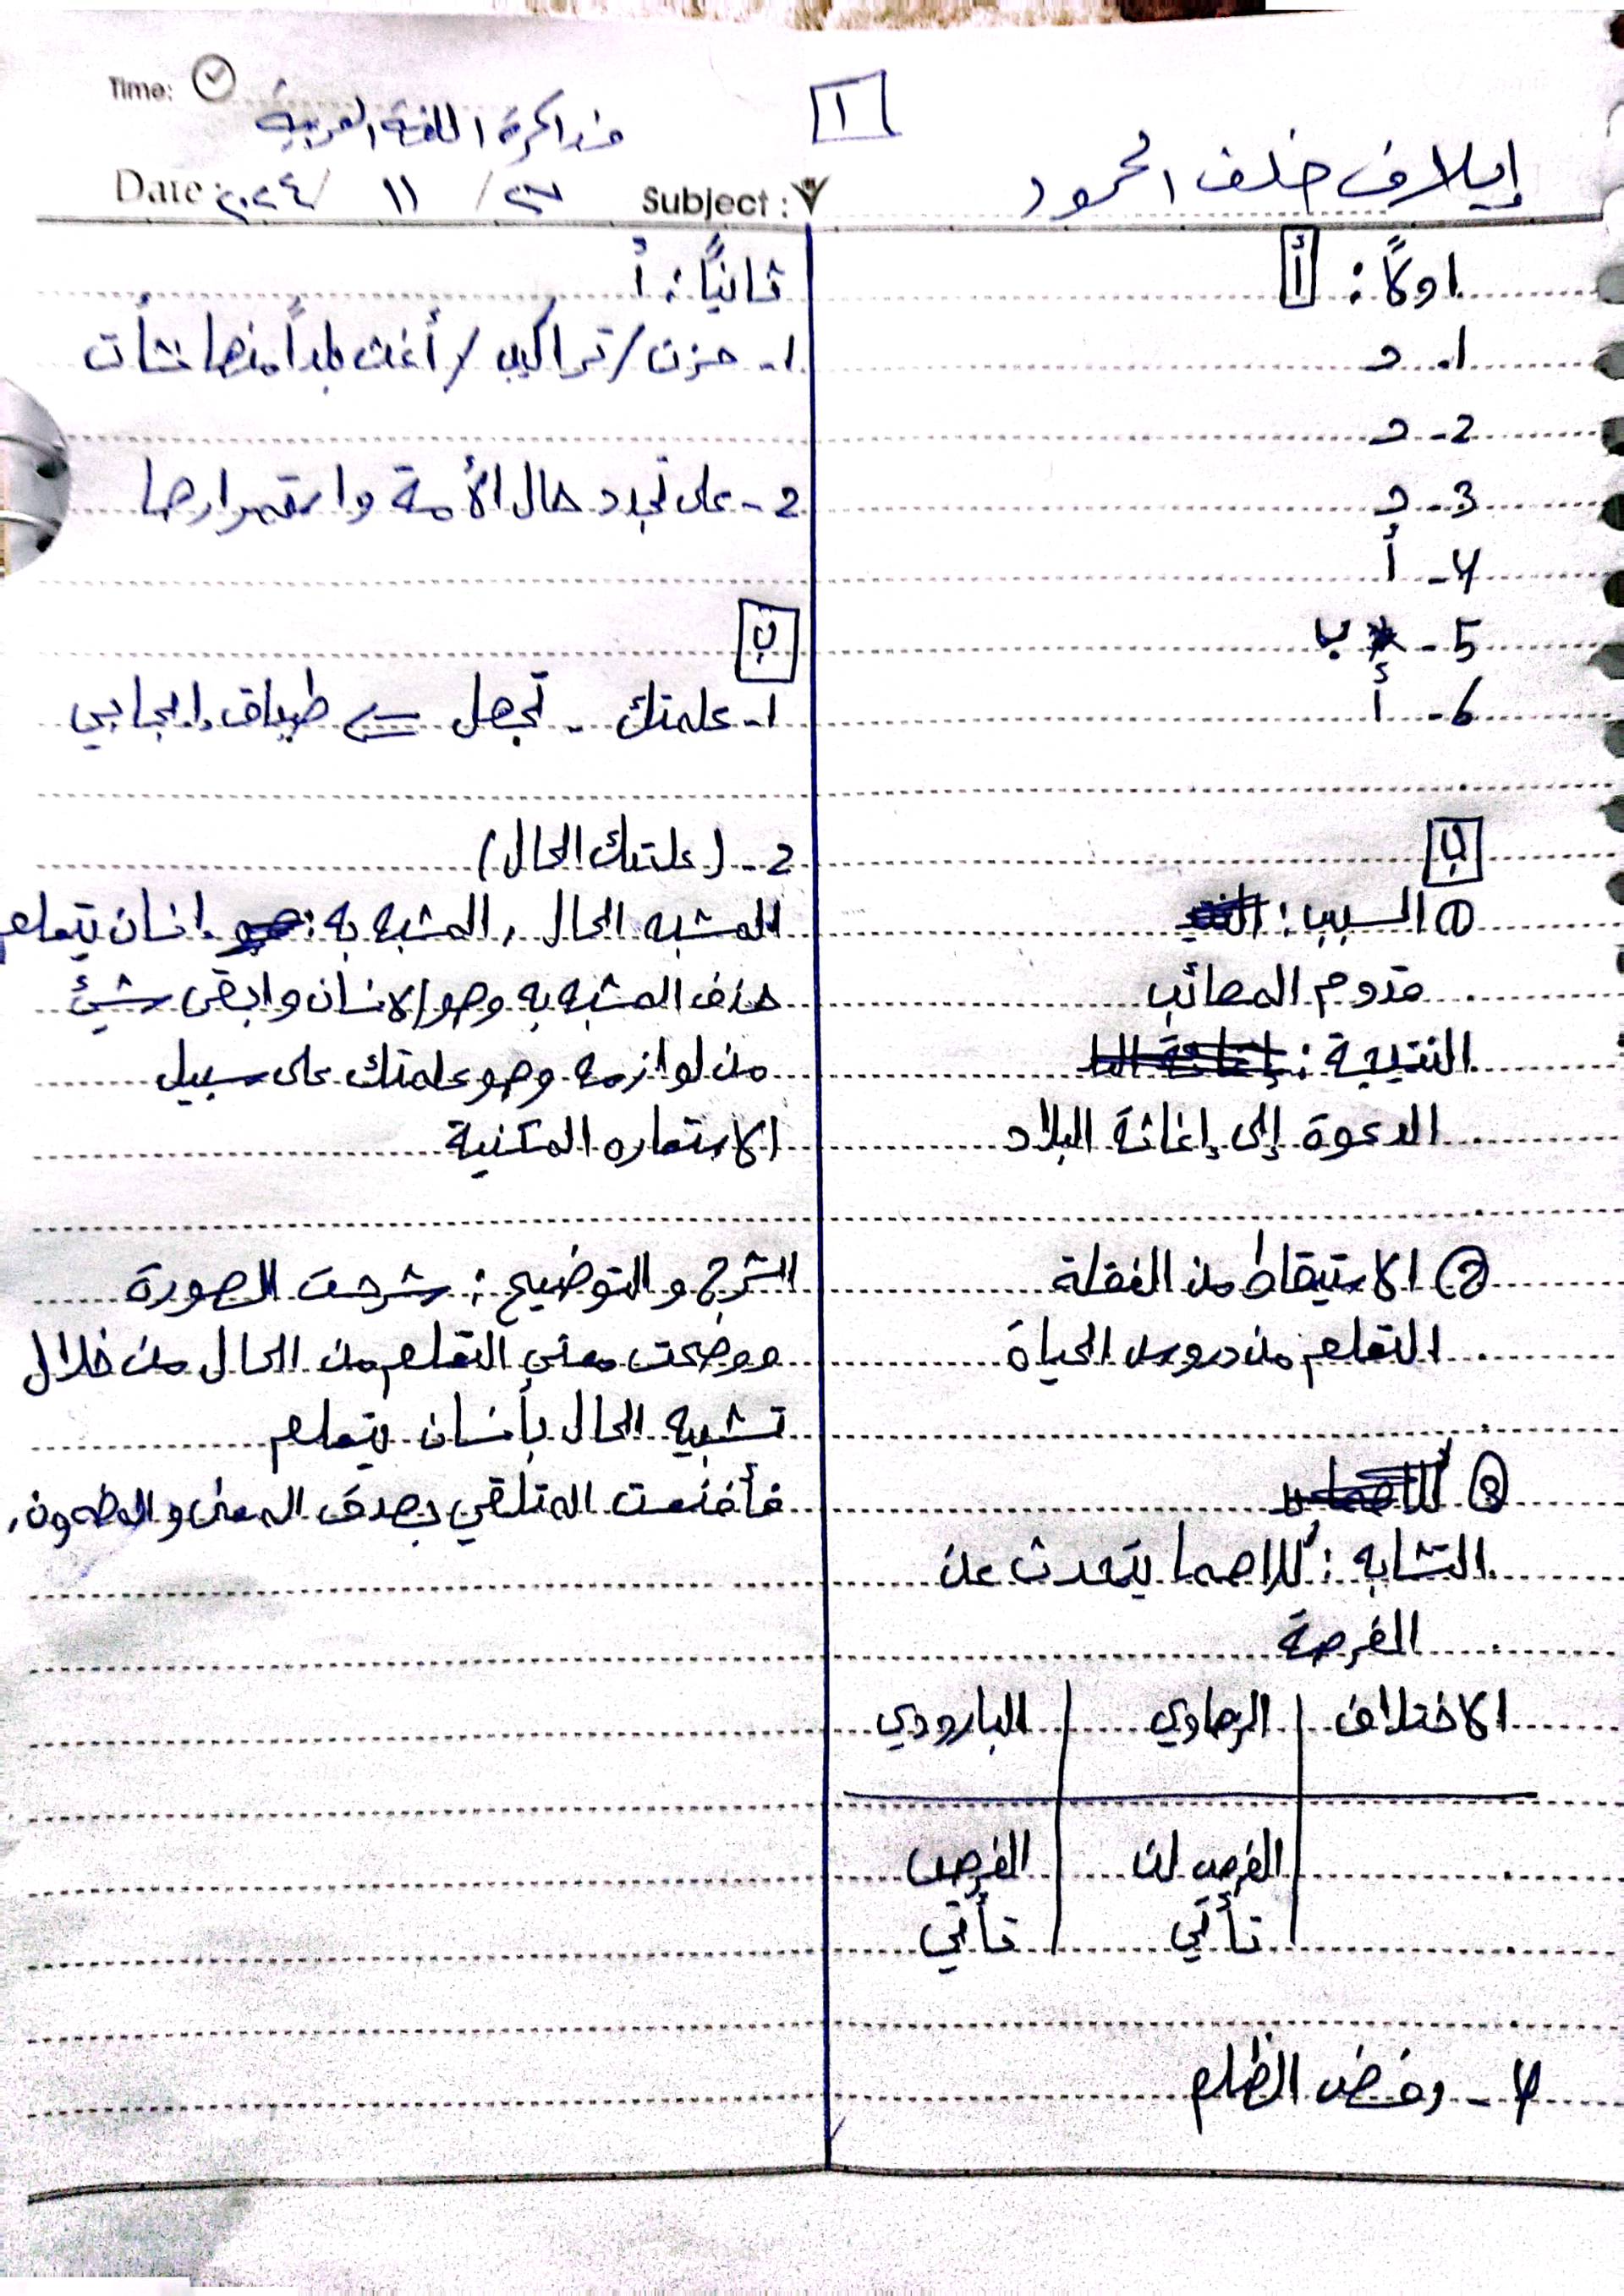 Time:
مذاكرة اللغة العربية
١
إيلاف خلف المحمود
Date: ٢٠٢٤ / ١١ / ٢٧
Subject:
اولاً: أ
1. د
2- د
3- د
4- أ
5- ب
6- أ
ب
① السبب:
قدوم المصائب
النتيجة:
الدعوة إلى إغاثة البلاد
② الاستيقاظ من الغفلة
التعلم من دروس الحياة
③
التشابه: كلاهما يتحدث عن
الفرصة
الاختلاف الرصاوي البارودي
الفرص لن الفرص
تأتي تأتي
4- رفض الظلم
ثانيًا: أ
1- حزن / تراكيب / أغث بلداً منها نشأت
2- على تجدد حال الأمة واستمرارها
ب
1- علمتك - تجهل ⇐ طباق إيجابي
2- (علمتك الحال)
المشبه الحال، المشبه به: إنسان يتعلم
حذف المشبه به وهو الانسان وابقى شيئ
من لوازمه وهو علمتك على سبيل
الاستعاره المكنية
الشرح والتوضيح: شرحت الصورة
ووضحت معنى التعلم من الحال من خلال
تشبيه الحال بأنسان يتعلم
فأقنعت المتلقي بصدق المعنى والمضمون.